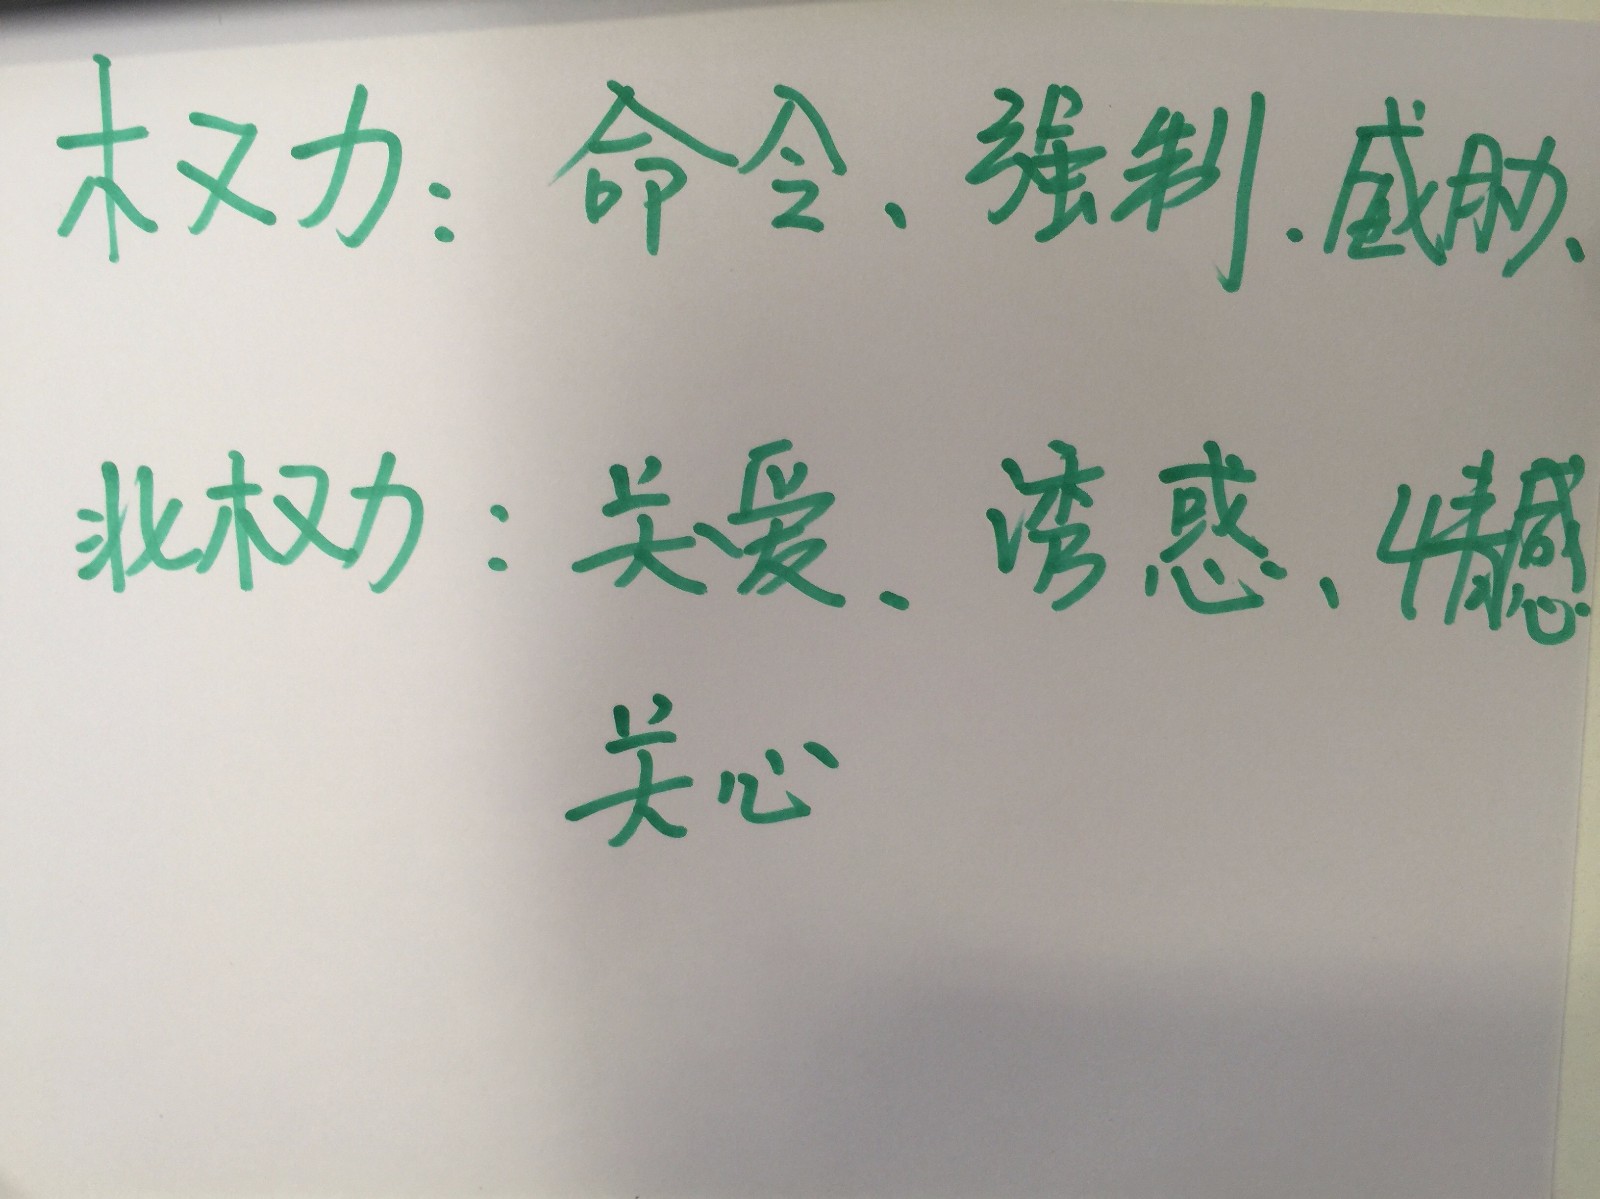 权力：命令、强制、威胁、
非权力：关爱、诱惑、情感
关心